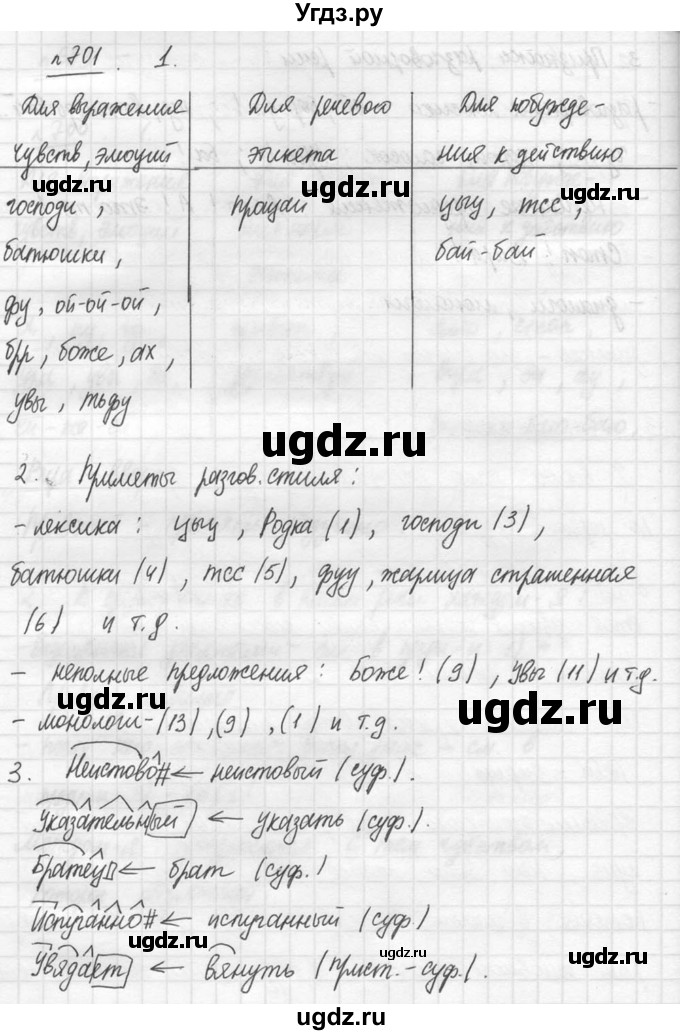 Угдз.ру
n701. 1.
Для выражения чувств, эмоций
Для речевого этикета
Для побуждения к действию
господи,
прощай
цыц, тсс,
батюшки,
бай-бай
фу, ой-ой-ой,
брр, боже, ах,
увы, тьфу
2. Приметы разгов. стиля:
- лексика: цыц, Родка (1), господи (3),
батюшки (4), тсс (5), фуу, жарища страшенная
(6) и т.д.
- неполные предложения: Боже! (9), Увы (11) и т.д.
- монологи - (13), (9), (1) и т.д.
3. Неистово ← неистовый (суф.).
Указательный ← указать (суф.).
Братец ← брат (суф.)
Испуганно ← испуганный (суф.)
Увядает ← вянуть (прист.-суф.).
ugdz.ru
ugdz.ru
ugdz.ru
ugdz.ru
ugdz.ru
ugdz.ru
ugdz.ru
ugdz.ru
ugdz.ru
ugdz.ru
ugdz.ru
ugdz.ru